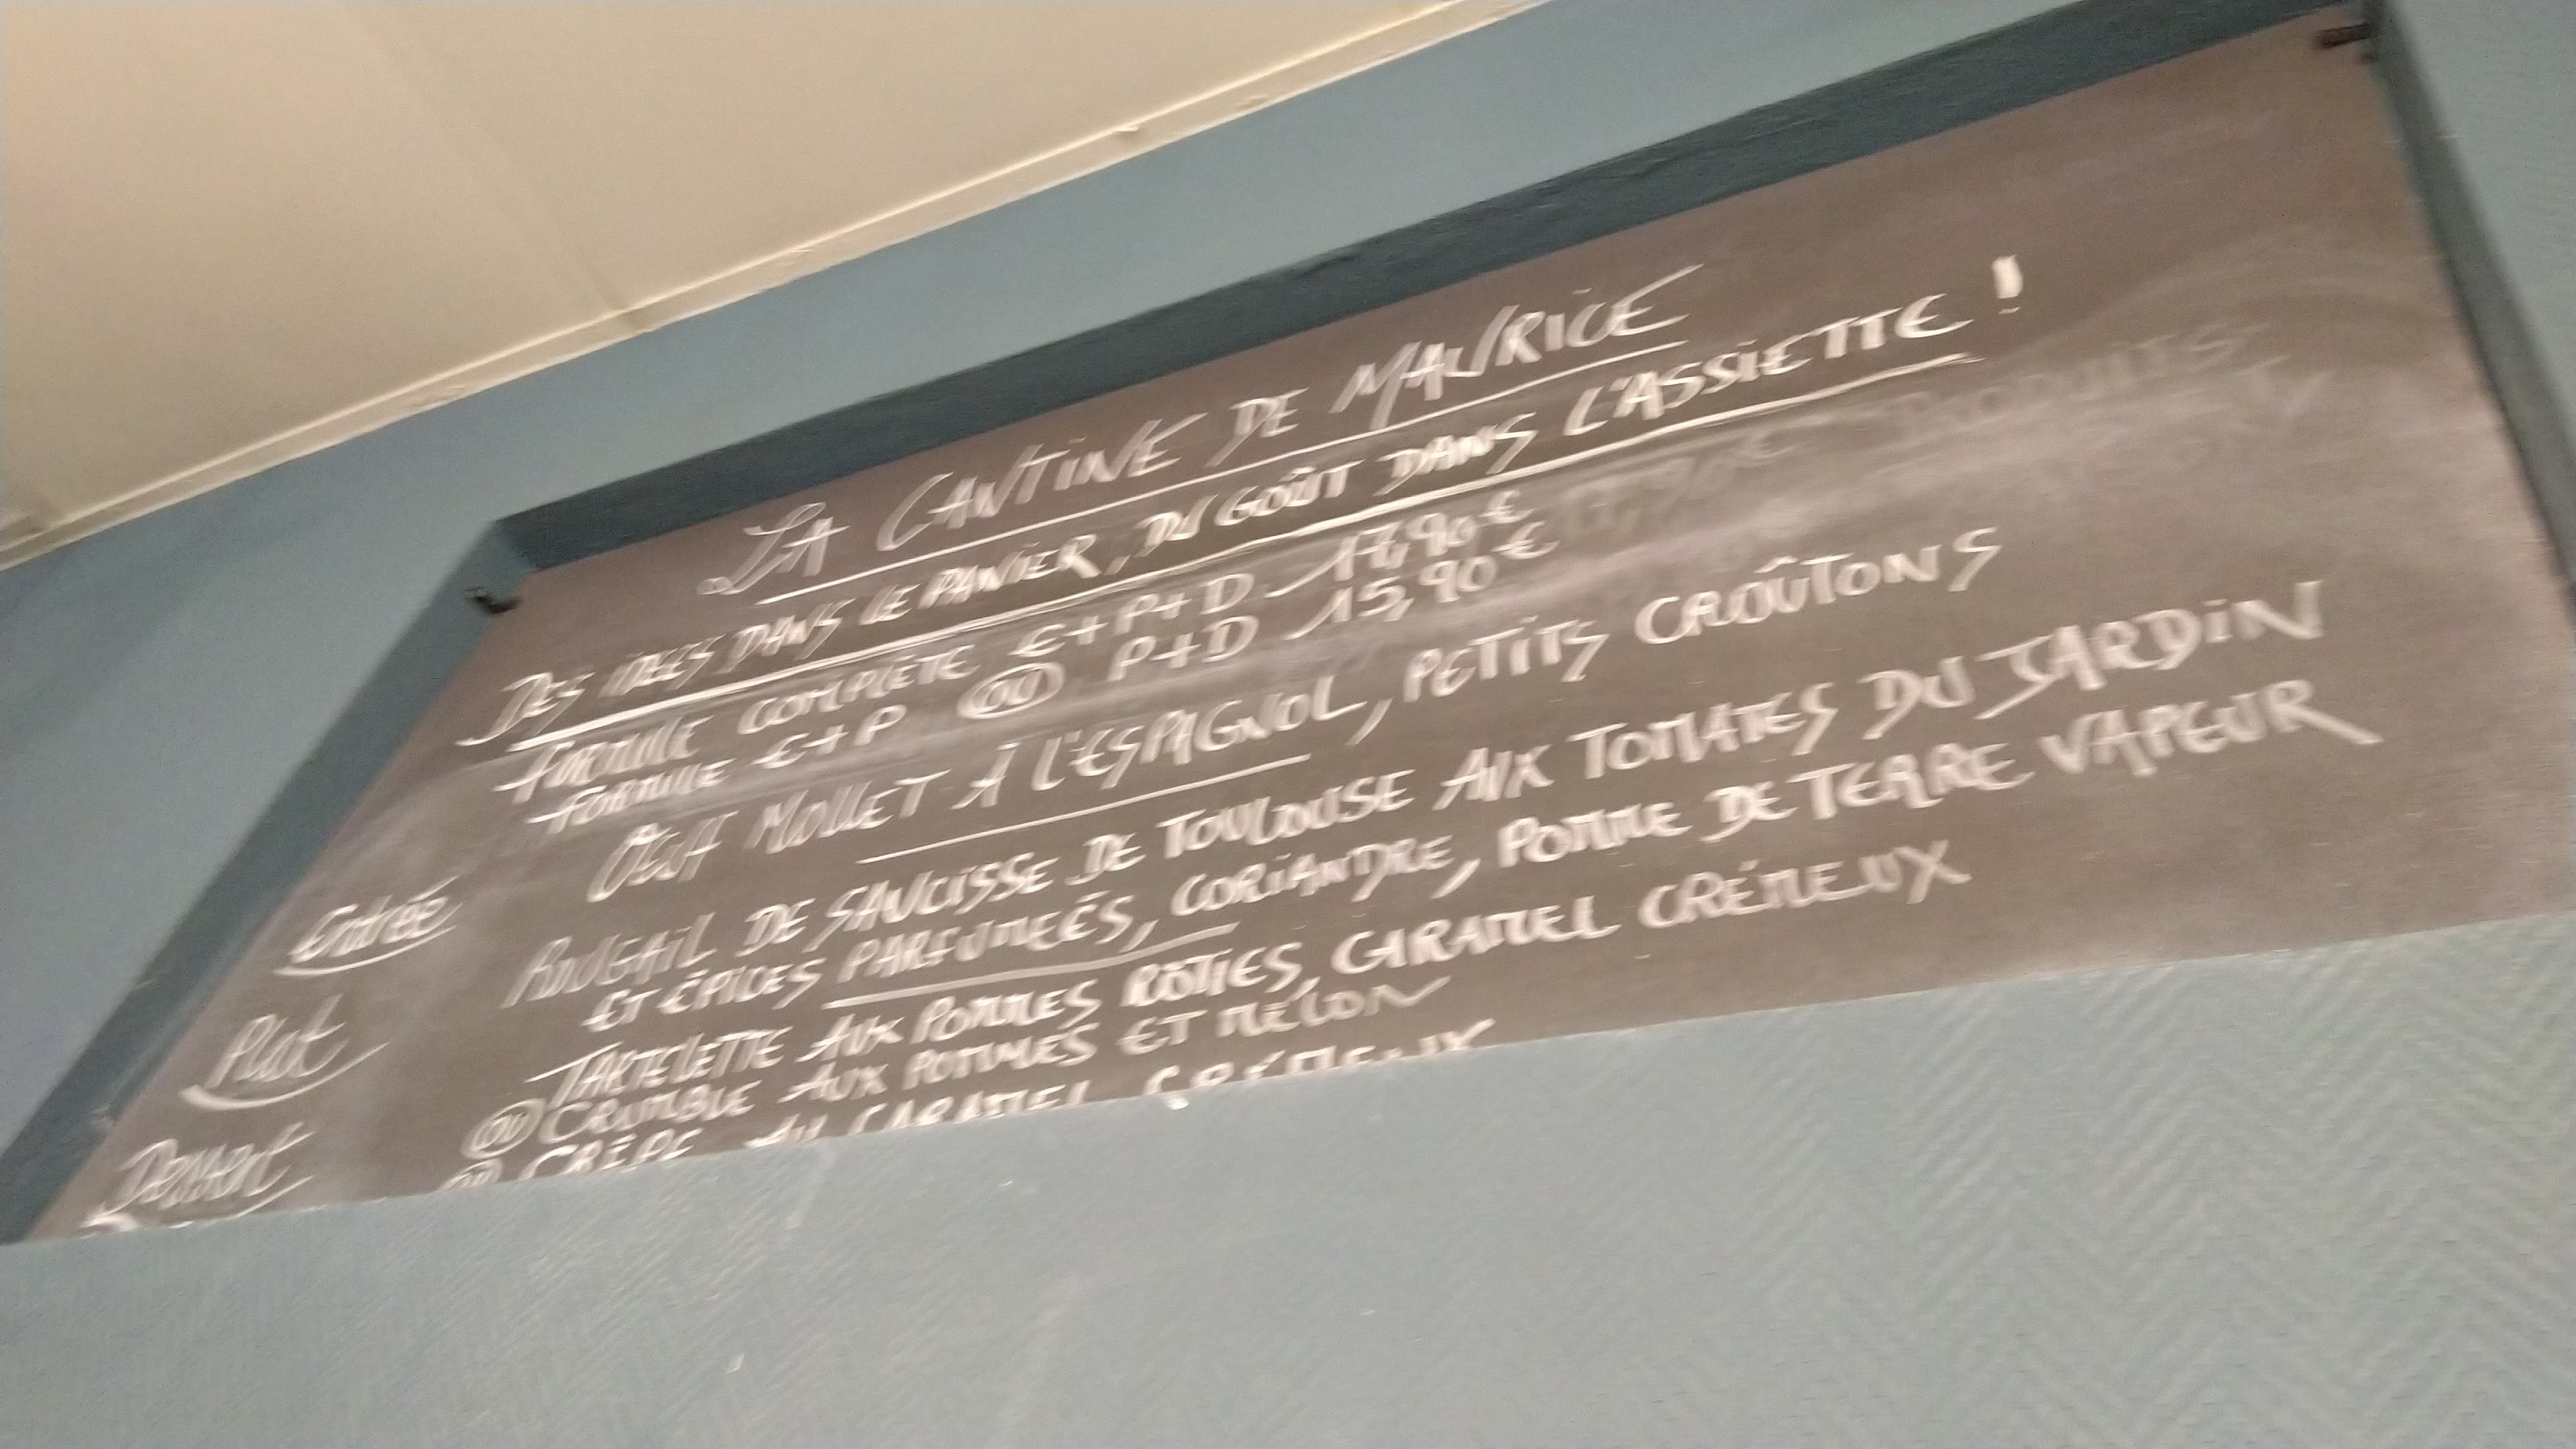 LA CANTINE DE MAURICE
DES IDÉES DANS LE PANIER, DU GOÛT DANS L'ASSIETTE !
FORMULE COMPLÈTE E+P+D 17,90 €
FORMULE E+P OU P+D 15,90 €
Entrée OEUF MOLLET À L'ESPAGNOL, PETITS CROÛTONS
Plat ROUGAIL DE SAUCISSE DE TOULOUSE AUX TOMATES DU JARDIN
ET ÉPICES PARFUMEÉS, CORIANDRE, POMME DE TERRE VAPEUR
Dessert TARTELETTE AUX POMMES RÔTIES, CARAMEL CRÉMEUX
OU CRUMBLE AUX POMMES ET MELON
OU CRÊPE AU CARAMEL CRÉMEUX